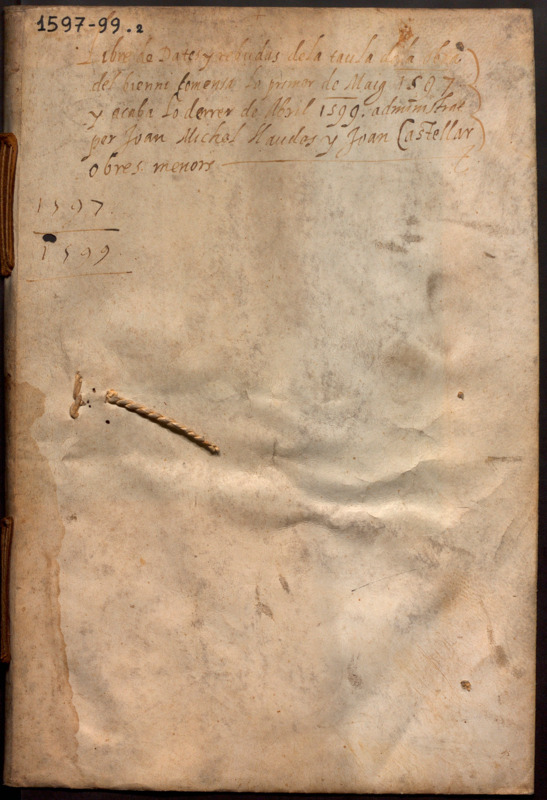 1597-99.2
Libre de Dates y rebudus de la taula de la obra
del bienni comensa Lo primer de Maig 1597
y acaba Lo derrer de Abril 1599. administrat
per Joan Michel y Joan Castellar
obres. menors
1597.
1599.